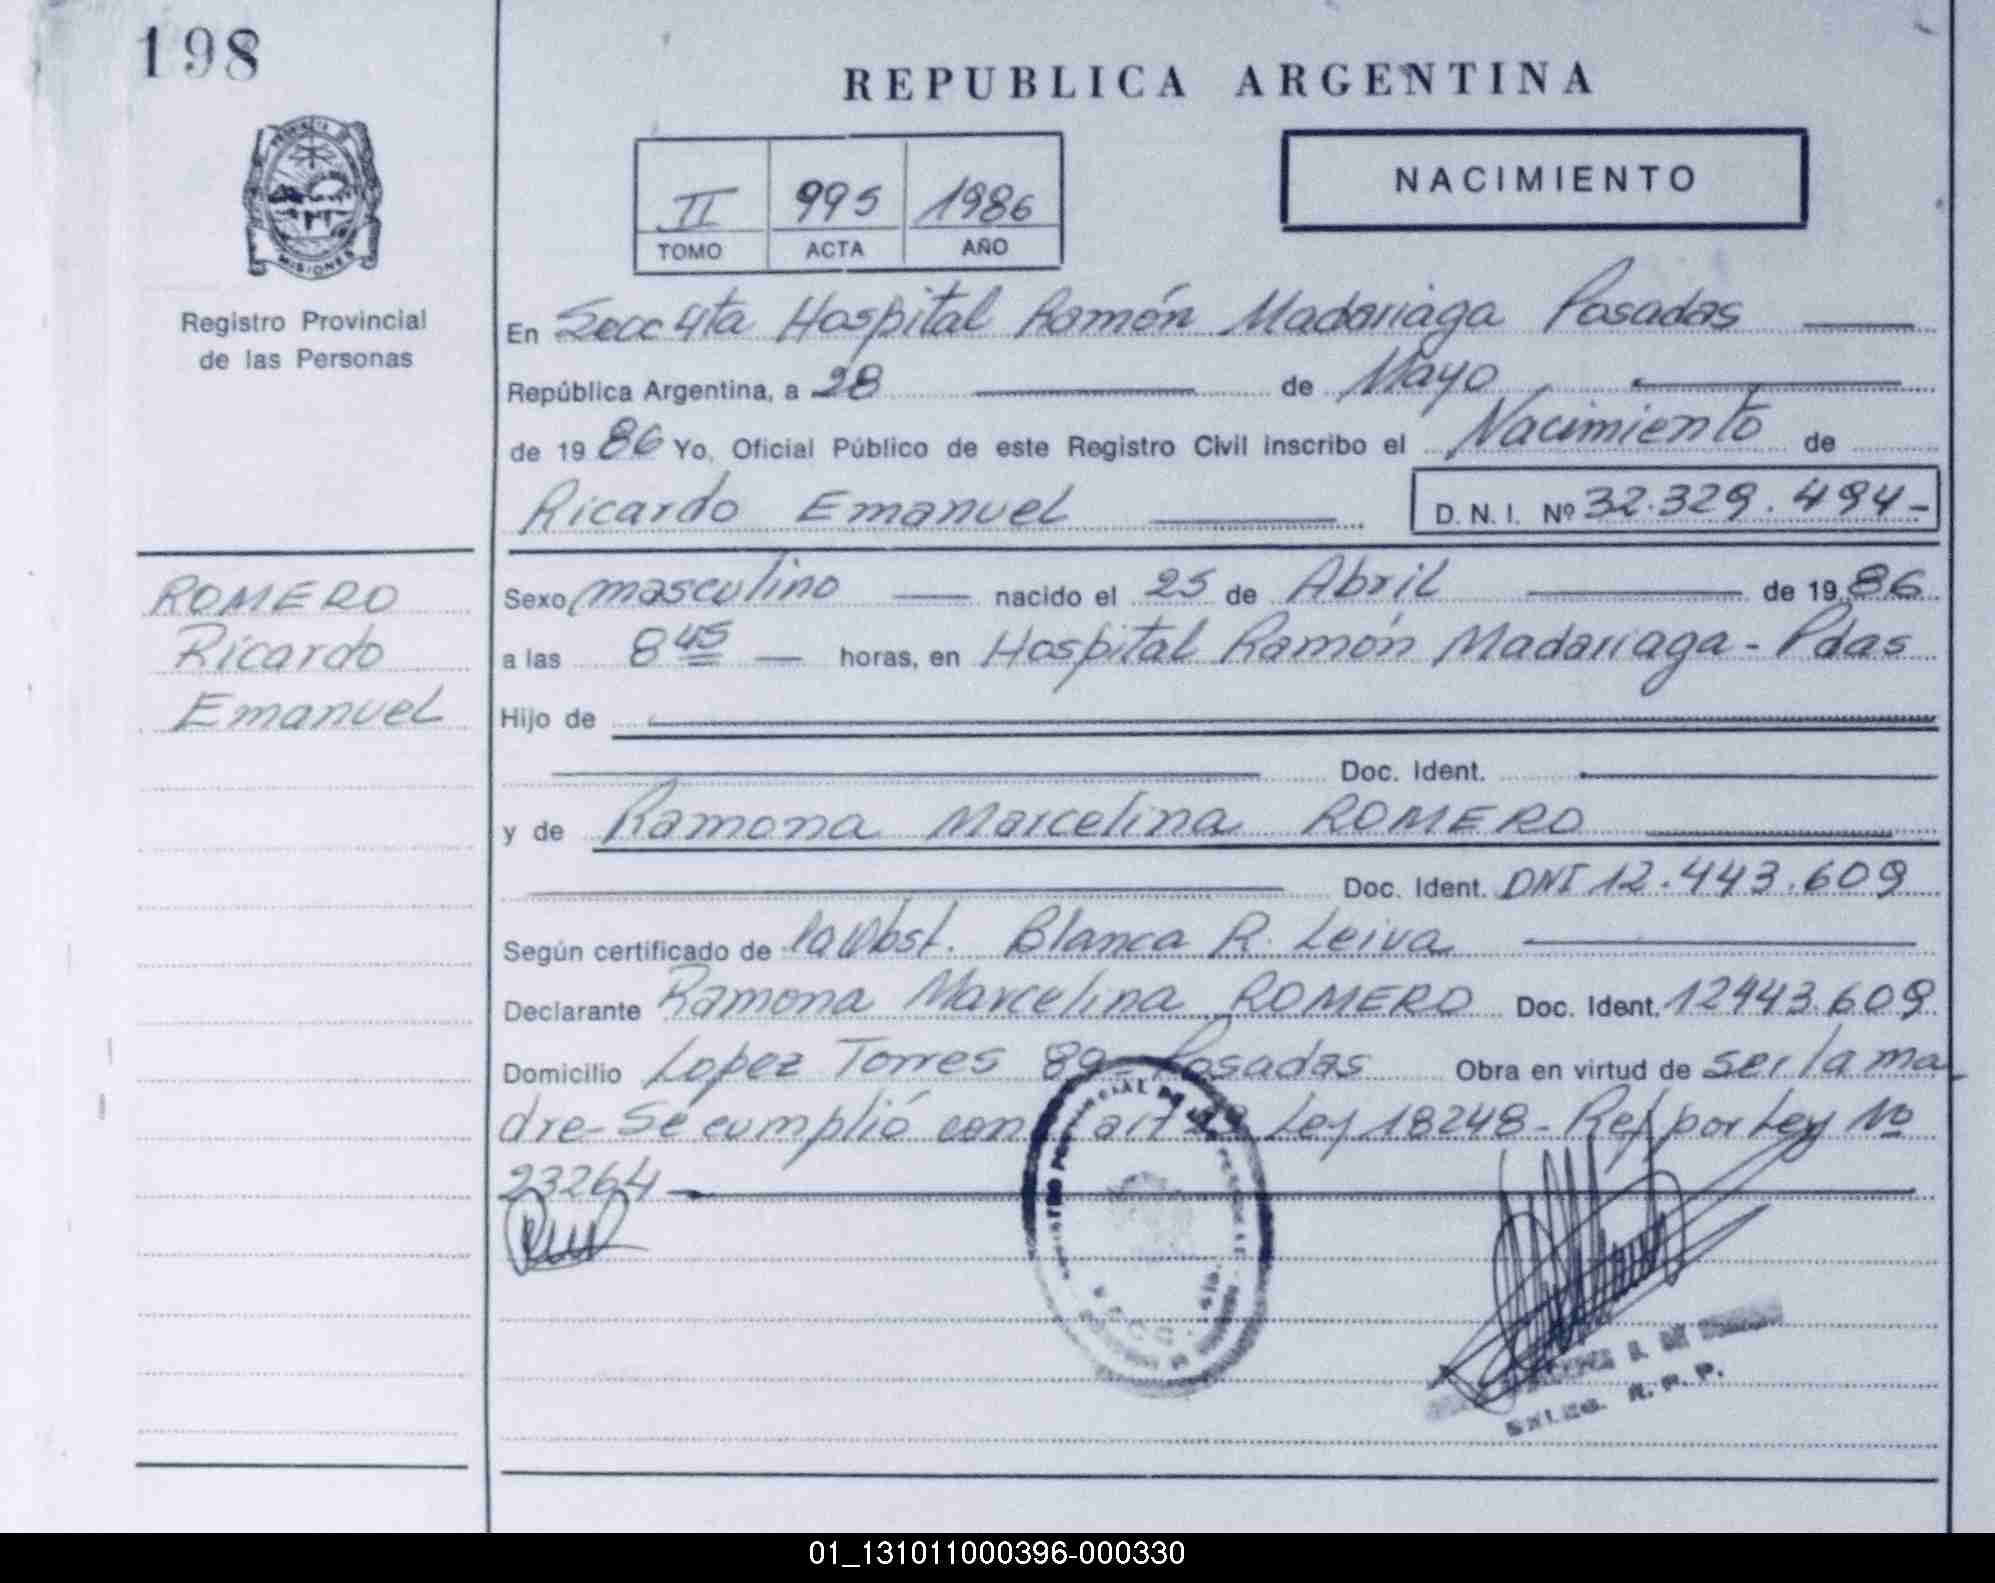 198
REPUBLICA ARGENTINA
NACIMIENTO
II 995 1986
TOMO ACTA AÑO
MISIONES
Registro Provincial
de las Personas
En Secc 4ta Hospital Ramón Madariaga Posadas
República Argentina, a 28 de Mayo
de 1986 Yo, Oficial Público de este Registro Civil inscribo el Nacimiento de
Ricardo Emanuel D. N. I. Nº 32.329.494-
ROMERO
Ricardo
Emanuel
Sexo masculino nacido el 25 de Abril de 1986
a las 8 45 horas, en Hospital Ramón Madariaga - Pdas
Hijo de
Doc. Ident.
y de Ramona Marcelina ROMERO
Doc. Ident. DNI 12.443.609
Según certificado de la Obst. Blanca R. Leiva
Declarante Ramona Marcelina ROMERO Doc. Ident. 12443.609
Domicilio Lopez Torres 89 - Posadas Obra en virtud de ser la ma
dre - Se cumplió con art Ley 18248 - Ref por Ley Nº
23264
R. P. P.
01_131011000396-000330